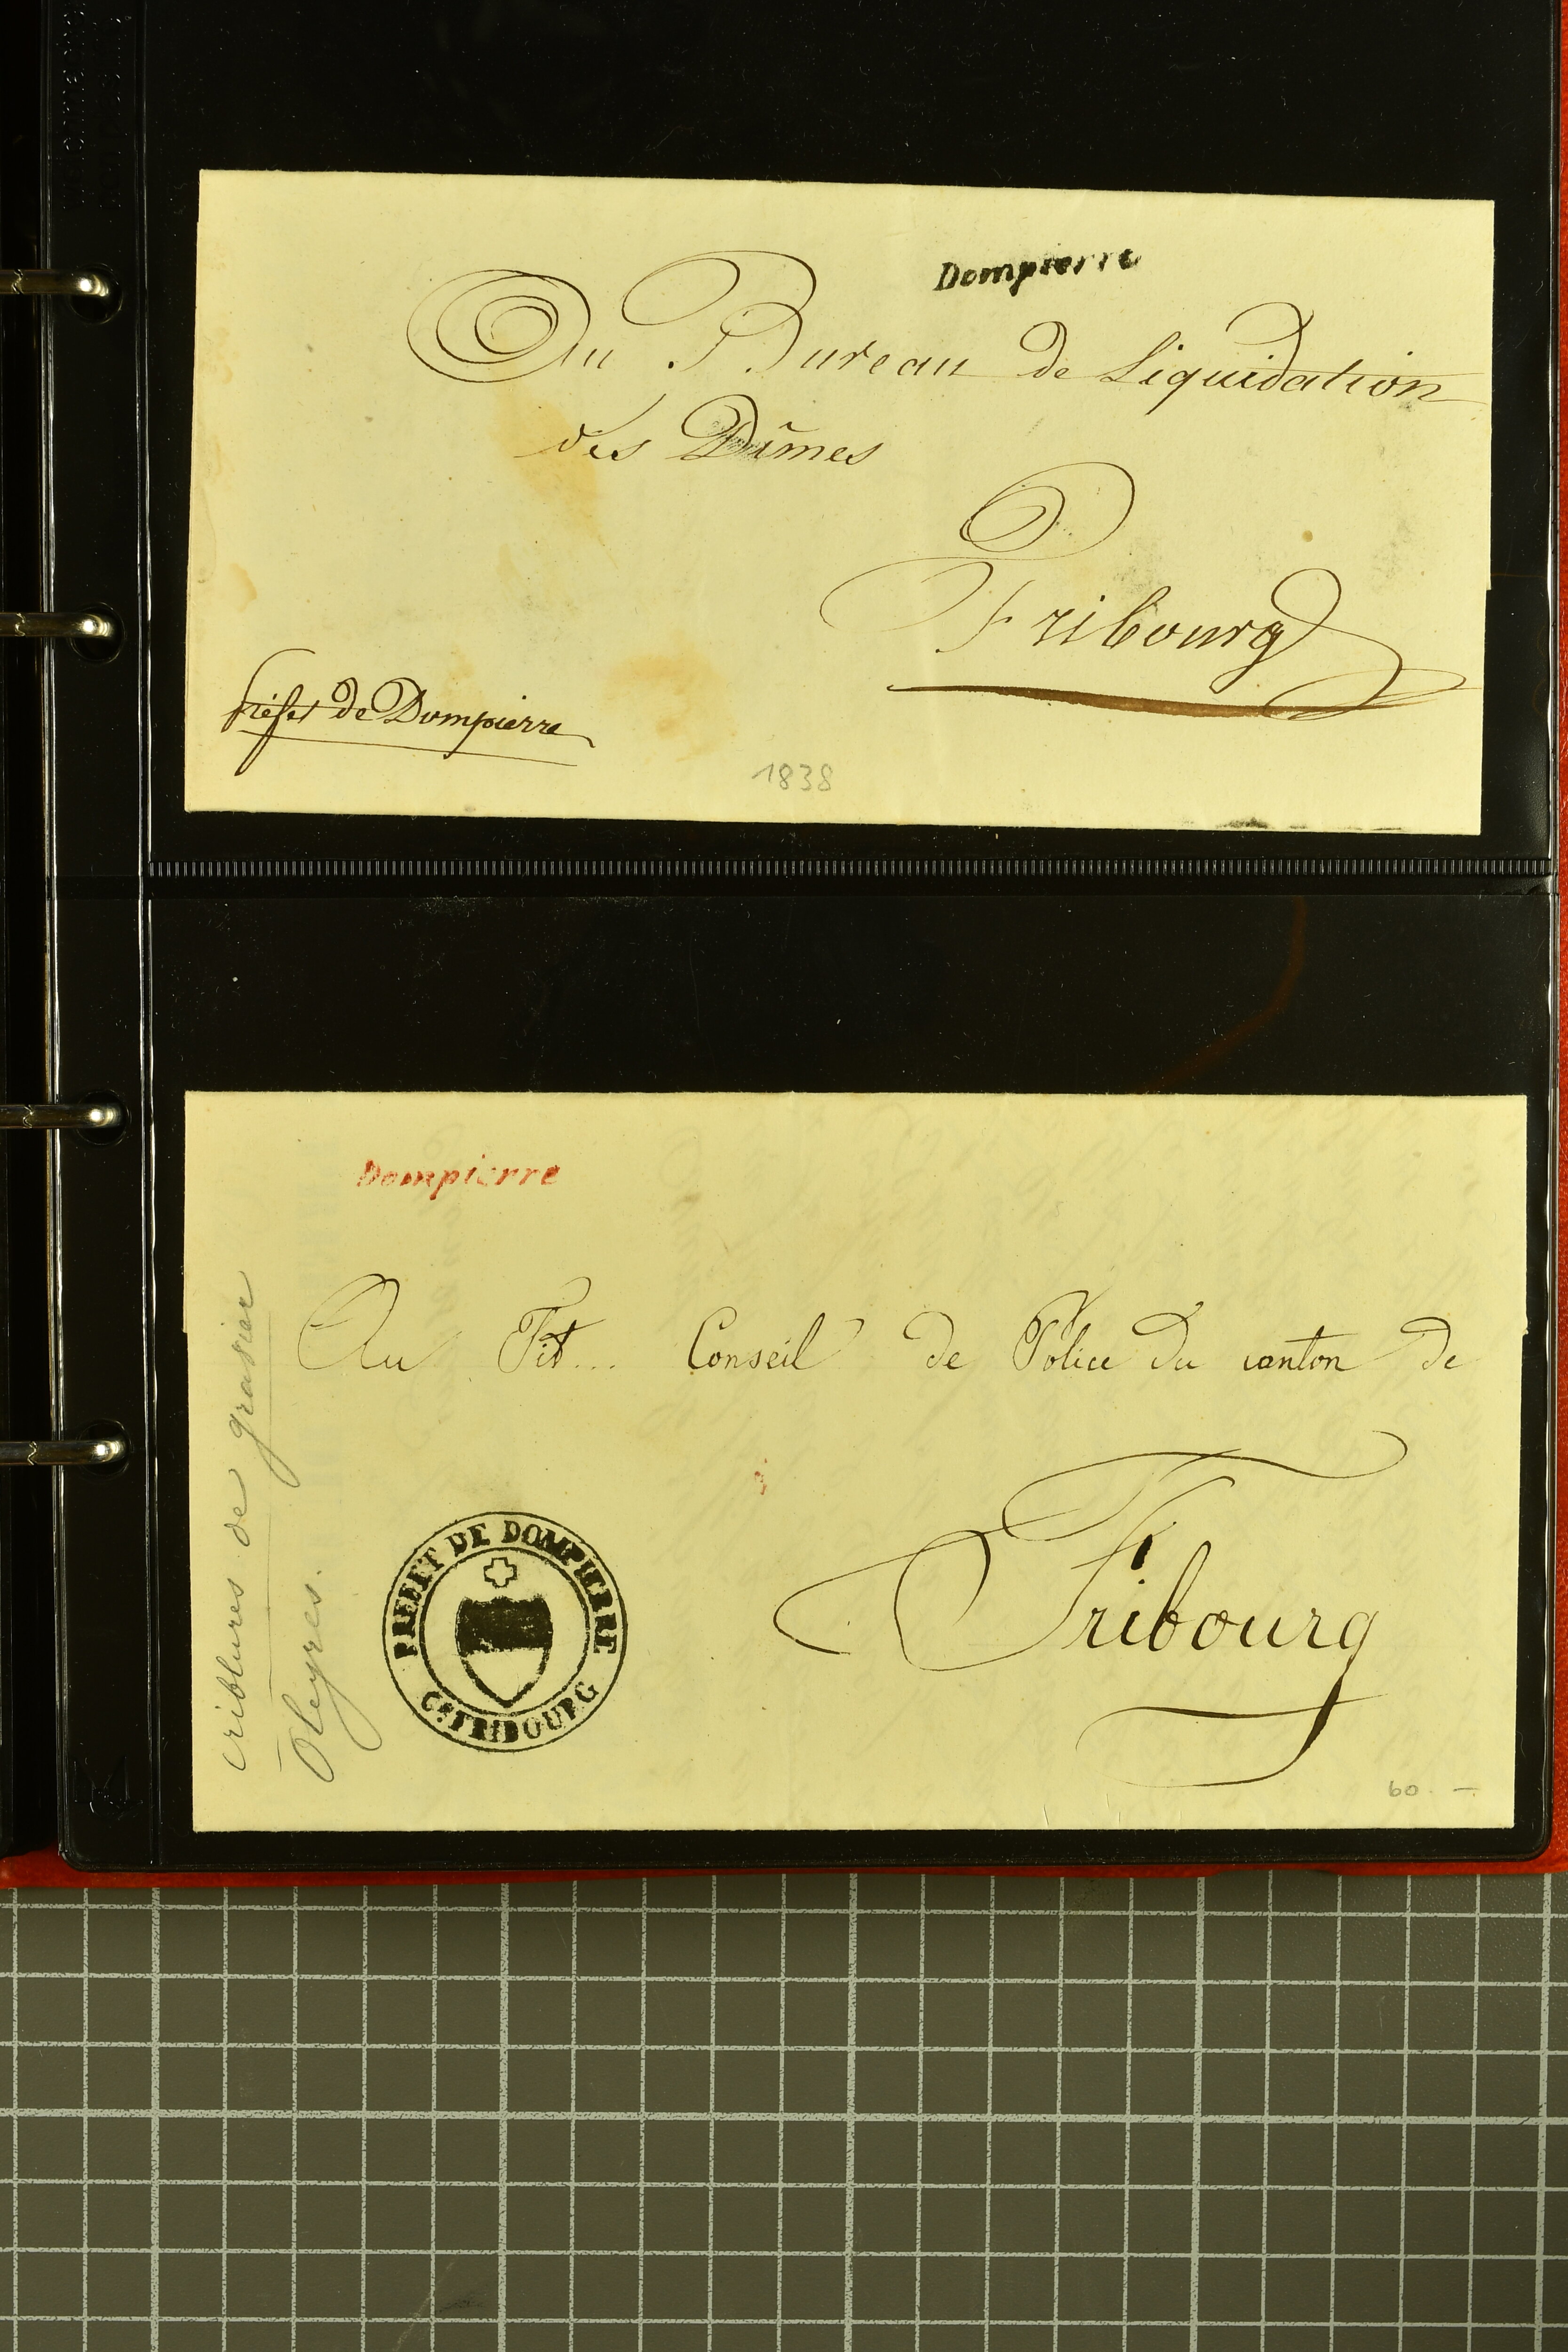 Dompierre
Au Bureau de Liquidation
des Dîmes
Fribourg
Préfet de Dompierre
1838
Dompierre
Au Tit... Conseil de Police du canton de
Fribourg
PREFET DE DOMPIERRE
Cn FRIBOURG
criblures de
Oleyres.
60.-